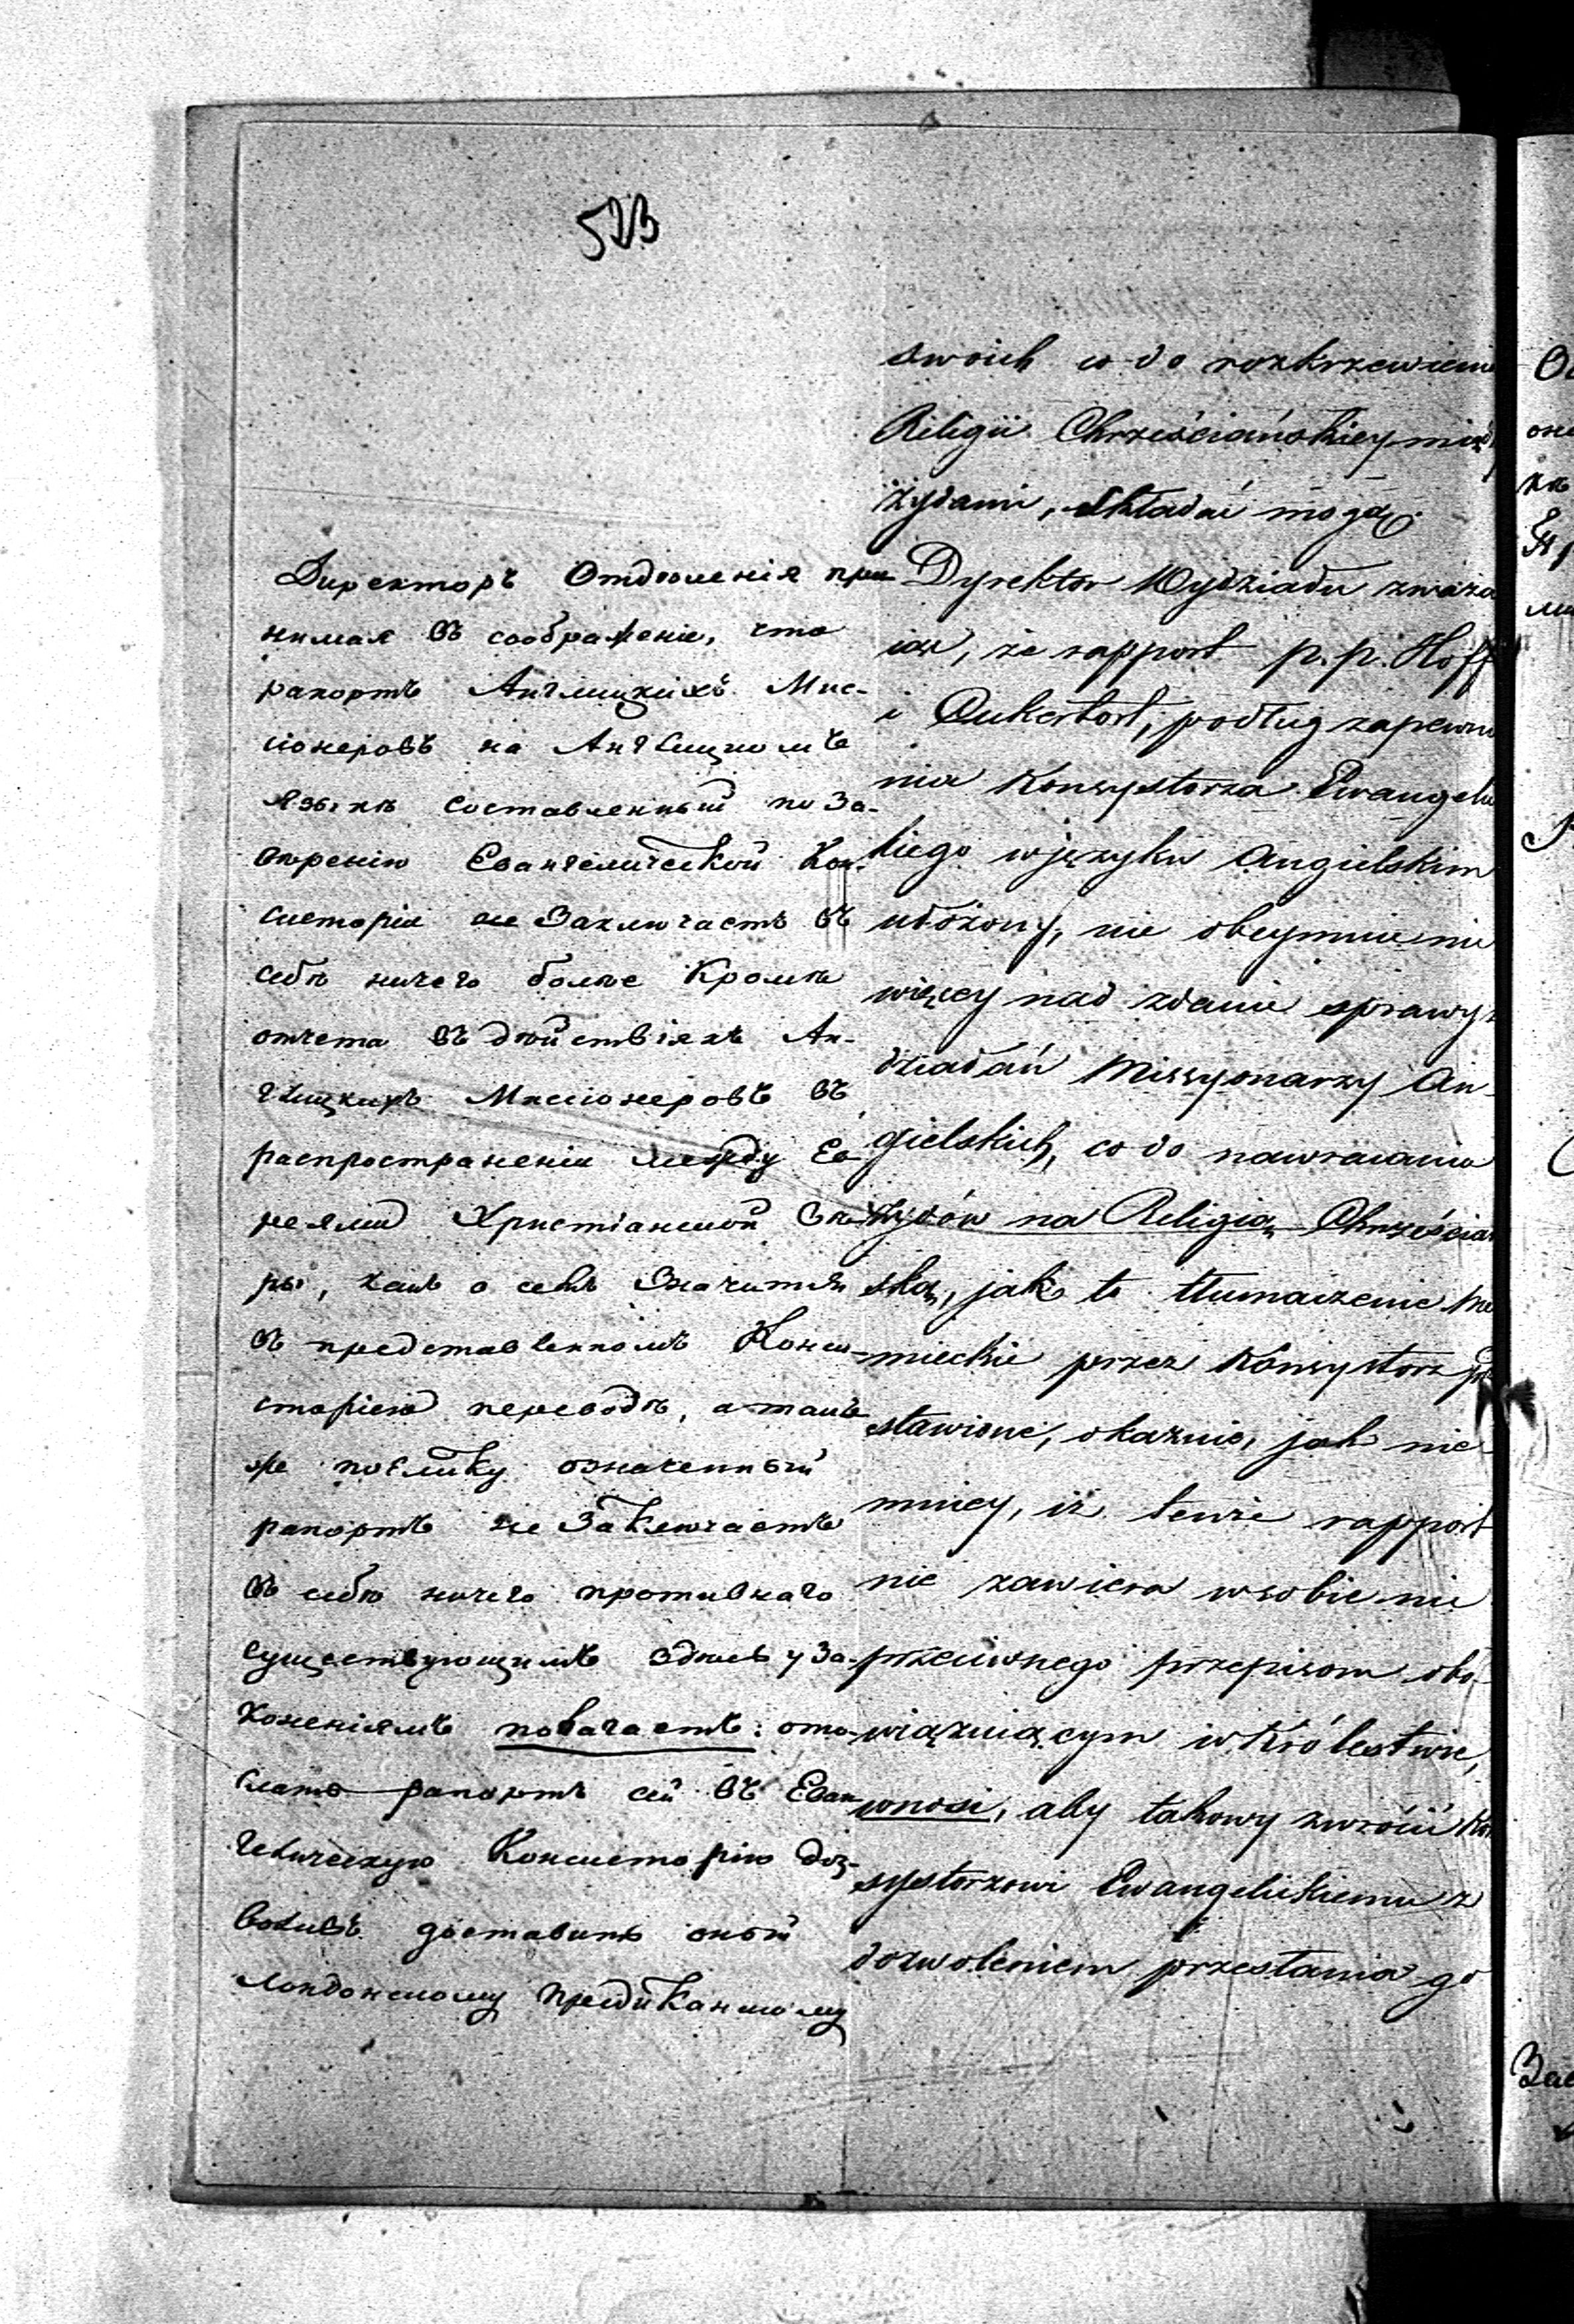 523
Директоръ Отдѣленія при
нимая въ соображеніе, что
рапортъ Англицкихъ Мис-
сіонеровъ на Англицкомъ
языкѣ составленный по За-
вѣренію Евангелической Кон-
систоріи не Заключаетъ въ
себѣ ничего болѣе кромѣ
отчета въ дѣйствіяхъ Ан-
глицкихъ Миссіонеровъ въ
распространеніи между Ев-
реями Христіанской Вѣ-
ры, какъ о семъ Значится
въ представленномъ Конси-
сторіею переводѣ, а такъ
же поелику означенный
рапортъ не Заключаетъ
въ себѣ ничего противнаго
существующимъ здѣсь уЗа-
коненіямъ полагаетъ: ото-
слать рапортъ сей въ Еван
гелическую Консисторію доз-
воливъ доставить оный
Лондонскому
swoich co do rozkrzewieni
Religii Chrześciańskiey międ
żydami, składać mogą.
Dyrektor Wydziału zważa
iąc, że rapport p.p. Hoff
i Oukerbort, podług zapewn
nia Konsystorza Ewangeli
kiego w języku Angielskim
ułożony, nie obeymuie nic
więcey nad zdanie sprawy z
działań Missyonarzy An-
gielskich, co do nawracania
żydów na Religią Chrześciań
ską, jak to tłumaczenie nie
mieckie przez Konsystorz prz
stawione, okazuie, jak nie
mniey, iż tenże rapport
nie zawiera w sobie nic
przeciwnego przepisom obo-
wiązuiącym w Królestwie,
wnosi, aby takowy zwrócić Kon
systorzowi Ewangelickiemu z
dozwoleniem przesłania go